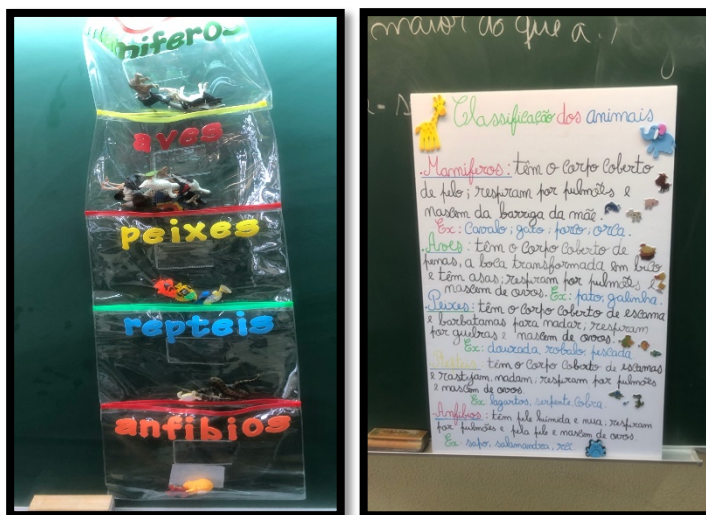 míferos
aves
peixes
répteis
anfíbios
maior do que a
Classificação dos animais
.Mamíferos: têm o corpo coberto
de pelo; respiram por pulmões e
nascem da barriga da mãe.
Ex: Cavalo; gato; porco, orca.
.Aves: têm o corpo coberto de
penas, a boca transformada em bico
e têm asas; respiram por pulmões e
nascem de ovos. Ex: pato, galinha.
.Peixes: têm o corpo coberto de escama
e barbatanas para nadar; respiram
por guelras e nascem de ovos.
Ex: dourada, robalo, pescada
Répteis: têm o corpo coberto de escamas
e rastejam, nadam, respiram por pulmões
e nascem de ovos.
Ex: lagartos, serpente, Cobra.
.Anfíbios: têm pele húmida e nua, respiram
por pulmões e pela pele e nascem de ovos
Ex: sapo, salamandra, rã.